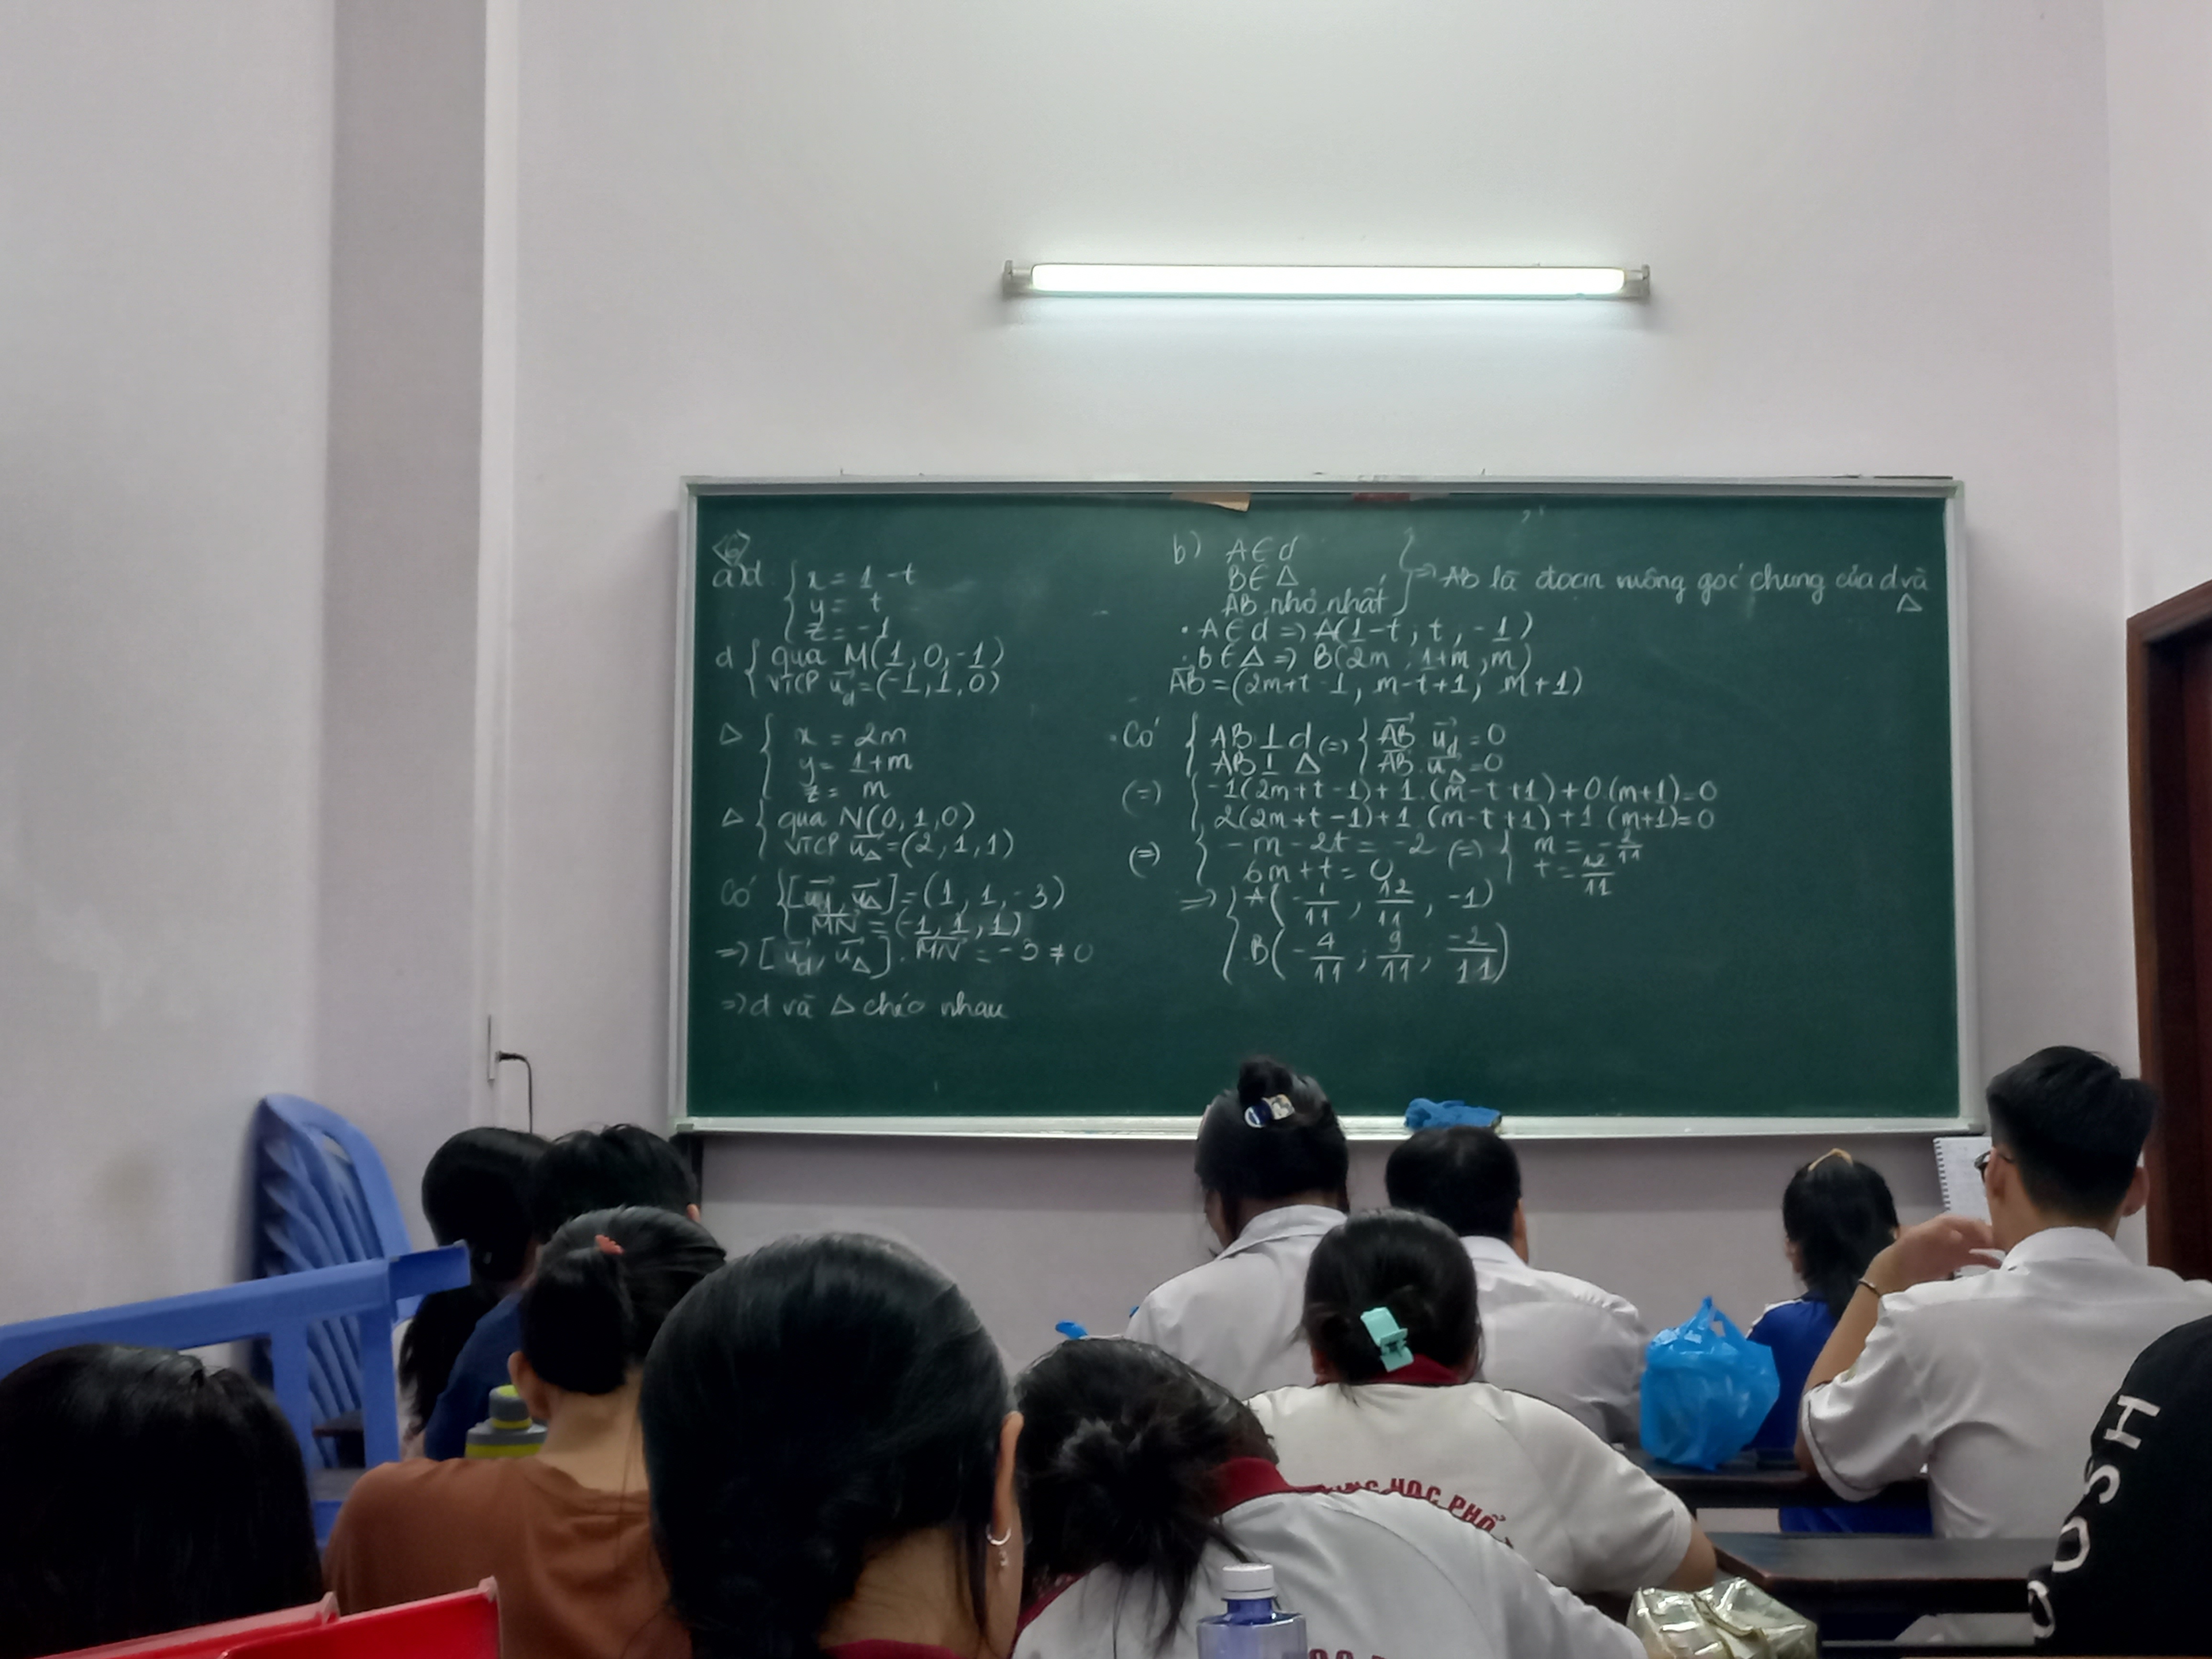 6
a) d: { x = 1 - t
y = t
z = -1
d { qua M(1, 0, -1)
VTCP u_d = (-1, 1, 0)
Δ { x = 2m
y = 1+m
z = m
Δ { qua N(0, 1, 0)
VTCP u_Δ = (2, 1, 1)
Có { [u_d, u_Δ] = (1, 1, -3)
MN = (-1, 1, 1)
=> [u_d, u_Δ] . MN = -3 ≠ 0
=> d và Δ chéo nhau
b) A ∈ d
B ∈ Δ
AB nhỏ nhất } => AB là đoạn vuông góc chung của d và Δ
• A ∈ d => A(1-t, t, -1)
• b ∈ Δ => B(2m, 1+m, m)
AB = (2m+t-1, m-t+1, m+1)
• Có { AB ⊥ d (=) { AB . u_d = 0
AB ⊥ Δ AB . u_Δ = 0
(=) { -1(2m+t-1) + 1.(m-t+1) + 0.(m+1) = 0
2(2m+t-1) + 1 (m-t+1) + 1 (m+1) = 0
(=) { -m - 2t = -2 (=) { m = -2/11
6m + t = 0 t = 12/11
=> { A(-1/11, 12/11, -1)
B(-4/11, 9/11, -2/11)
HỌC PHỔ